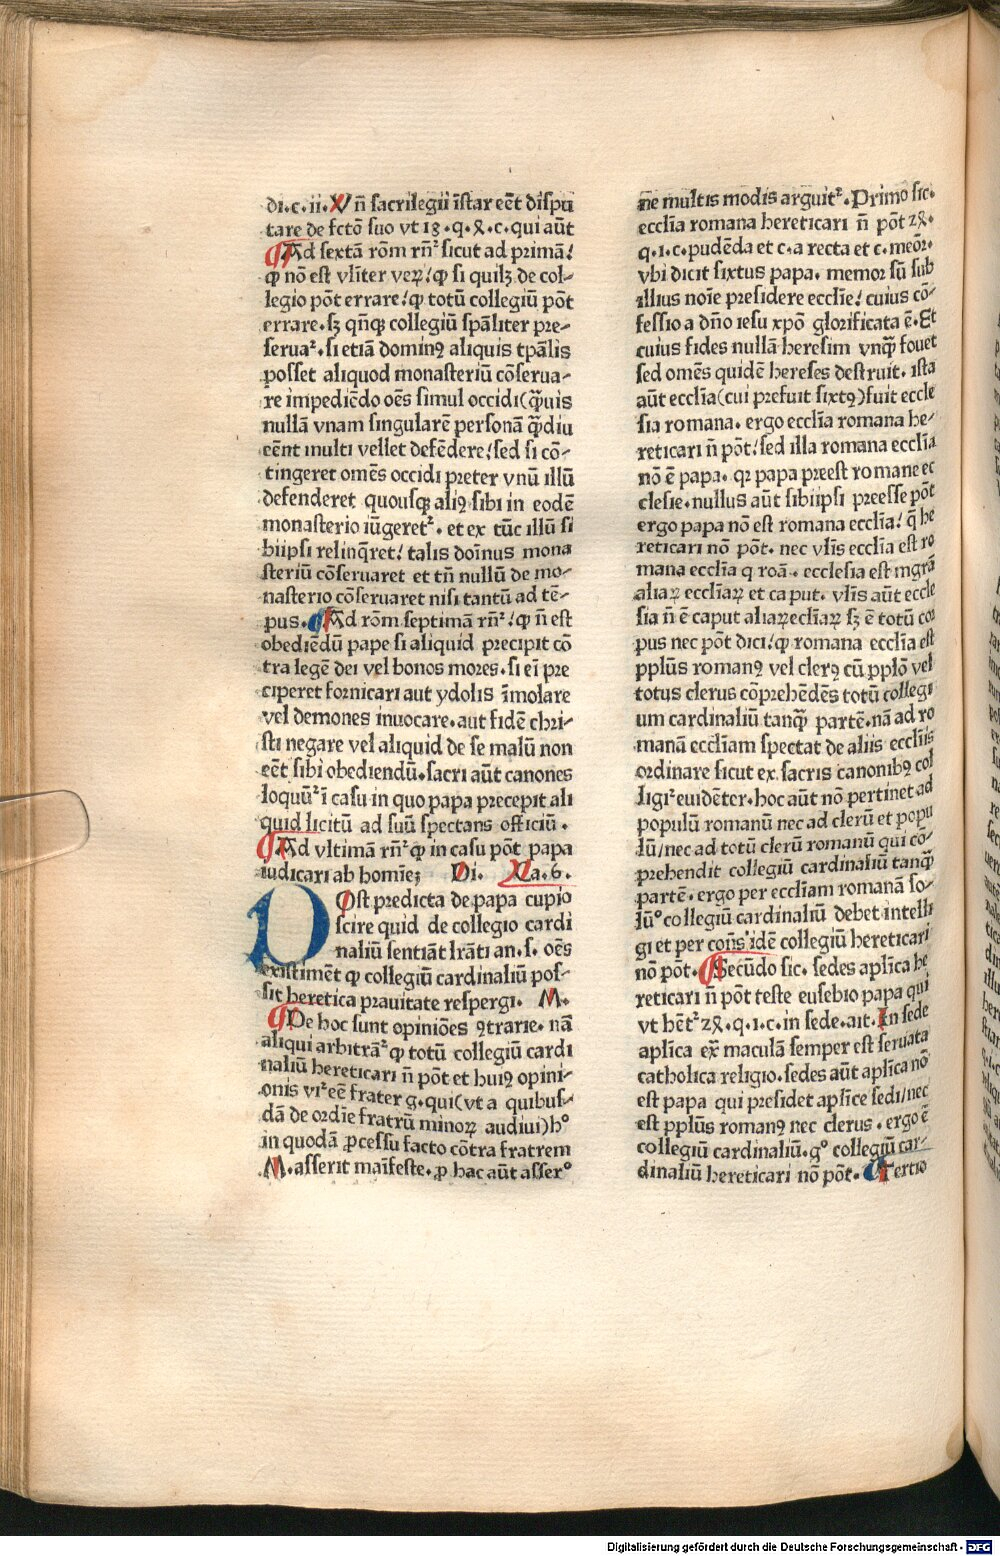 di.c.ii.Vn̄ sacrilegii īstar eēt dispu
tare de fctō suo vt 18.q.ꝝ.c.qui aūt
¶Ad sextā rōm rn̄ᷣ sicut ad primā/
ꝙ nō est vl̄iter veꝝ/ꝙ si quilꝫ de col-
legio pōt errare/ꝙ totū collegiū pōt
errare.sꝫ qn̄qꝫ collegiū spāliter pre-
seruaᷣ.si etiā dominꝰ aliquis tpālis
posset aliquod monasteriū cōserua-
re impediēdo oēs simul occidi(ꝙ̄uis
nullā vnam singularē personā ꝙ̄diu
eēnt multi vellet defēdere/sed si cō-
tingeret omēs occidi preter vnū illū
defenderet quousqꝫ aliꝰ sibi in eodē
monasterio iūgeretᷣ. et ex tūc illū si
biipsi relinq̄ret/ talis doīnus mona
steriū cōseruaret et tn̄ nullū de mo-
nasterio cōseruaret nisi tantū ad tē-
pus.¶Ad rōm septimā rn̄ᷣ/ꝙ n̄ est
obediēdū pape si aliquid precipit cō
tra legē dei vel bonos mores.si ei̅ pre
ciperet fornicari aut ydolis īmolare
vel demones inuocare.aut fidē chri-
sti negare vel aliquid de se malū non
eēt sibi obediendū.sacri aūt canones
loquūᷣ ī casu in quo papa precepit ali
quid licitū ad suū spectans officiū.
¶Ad vltimā rn̄ᷣ ꝙ in casu pōt papa
iudicari ab homīeꝫ Di. Ca.6.
POst predicta de papa cupio
scire quid de collegio cardi
naliū sentiāt lrāti an.s. oēs
existimēt ꝙ collegiū cardinaliū pos-
sit heretica prauitate respergi. M.
¶De hoc sunt opiniōes ꝯtrarie. nā
aliqui arbitrāᷣ ꝙ totū collegiū cardi
naliū hereticari n̄ pōt et huiꝰ opini-
onis vrᷣ eē frater g.qui(vt a quibus-
dā de ordīe fratrū minoꝝ audiui)h°
in quodā ꝓcessu facto cōtra fratrem
M.asserit maīfeste.ꝓ hac aūt asser°
ne multis modis arguitᷣ.Primo sic.
eccl̄ia romana hereticari n̄ pōt 2ꝝ.
q.1.c.pudēda et c.a recta et c.meōr.
vbi dicit sixtus papa. memor sū sub
illius noīe presidere eccl̄ie/ cuius cō-
fessio a dn̄o iesu xp̄o glorificata ē.Et
cuius fides nullā heresim vnqꝙ̄ fouet
sed omēs quidē hereses destruit. ista
aūt eccl̄ia(cui prefuit sixtꝰ)fuit eccle
sia romana. ergo eccl̄ia romana he-
reticari n̄ pōt/sed illa romana eccl̄ia
nō ē papa. qꝛ papa preest romane ec
clesie.nullus aūt sibiipsi preesse pōt
ergo papa nō est romana eccl̄ia/ q̄ he
reticari nō pōt. nec vl̄is eccl̄ia est ro
mana eccl̄ia q roā. ecclesia est mgrā
aliaꝝ eccl̄iaꝝ et caput. vl̄is aūt eccle
sia n̄ ē caput aliaꝝeccl̄iaꝝ sꝫ ē totū cor
pus nec pōt dici/ꝙ romana eccl̄ia est
pplūs romanꝰ vel clerꝰ cū pplō vel
totus clerus cōprehēdēs totū collegi
um cardinaliū tanqꝙ̄ partē.nā ad ro
manā eccl̄iam spectat de aliis eccl̄iis
ordinare sicut ex sacris canonibꝰ col
ligiᷣ euidēter.hoc aūt nō pertinet ad
populū romanū nec ad clerū et popu
lū/nec ad totū clerū romanū qui cō-
prehendit collegiū cardinaliū tanqꝙ̄
partē.ergo per eccl̄iam romanā so-
lū° collegiū cardinaliū debet intelli
gi et per con̄s idē collegiū hereticari
nō pōt.¶Secūdo sic. sedes apl̄ica he
reticari n̄ pōt teste eusebio papa qui
vt hēt̄ᷣ 2ꝝ.q.1.c.in sede.ait.In sede
apl̄ica ex̄ maculā semper est seruata
catholica religio.sedes aūt apl̄ica nō
est papa qui presidet apl̄ice sedi/nec
est pplūs romanꝰ nec clerus.ergo ē
collegiū cardinaliū.g° collegiū car-
dinaliū hereticari nō pōt.¶Tertio
Digitalisierung gefördert durch die Deutsche Forschungsgemeinschaft - DFG